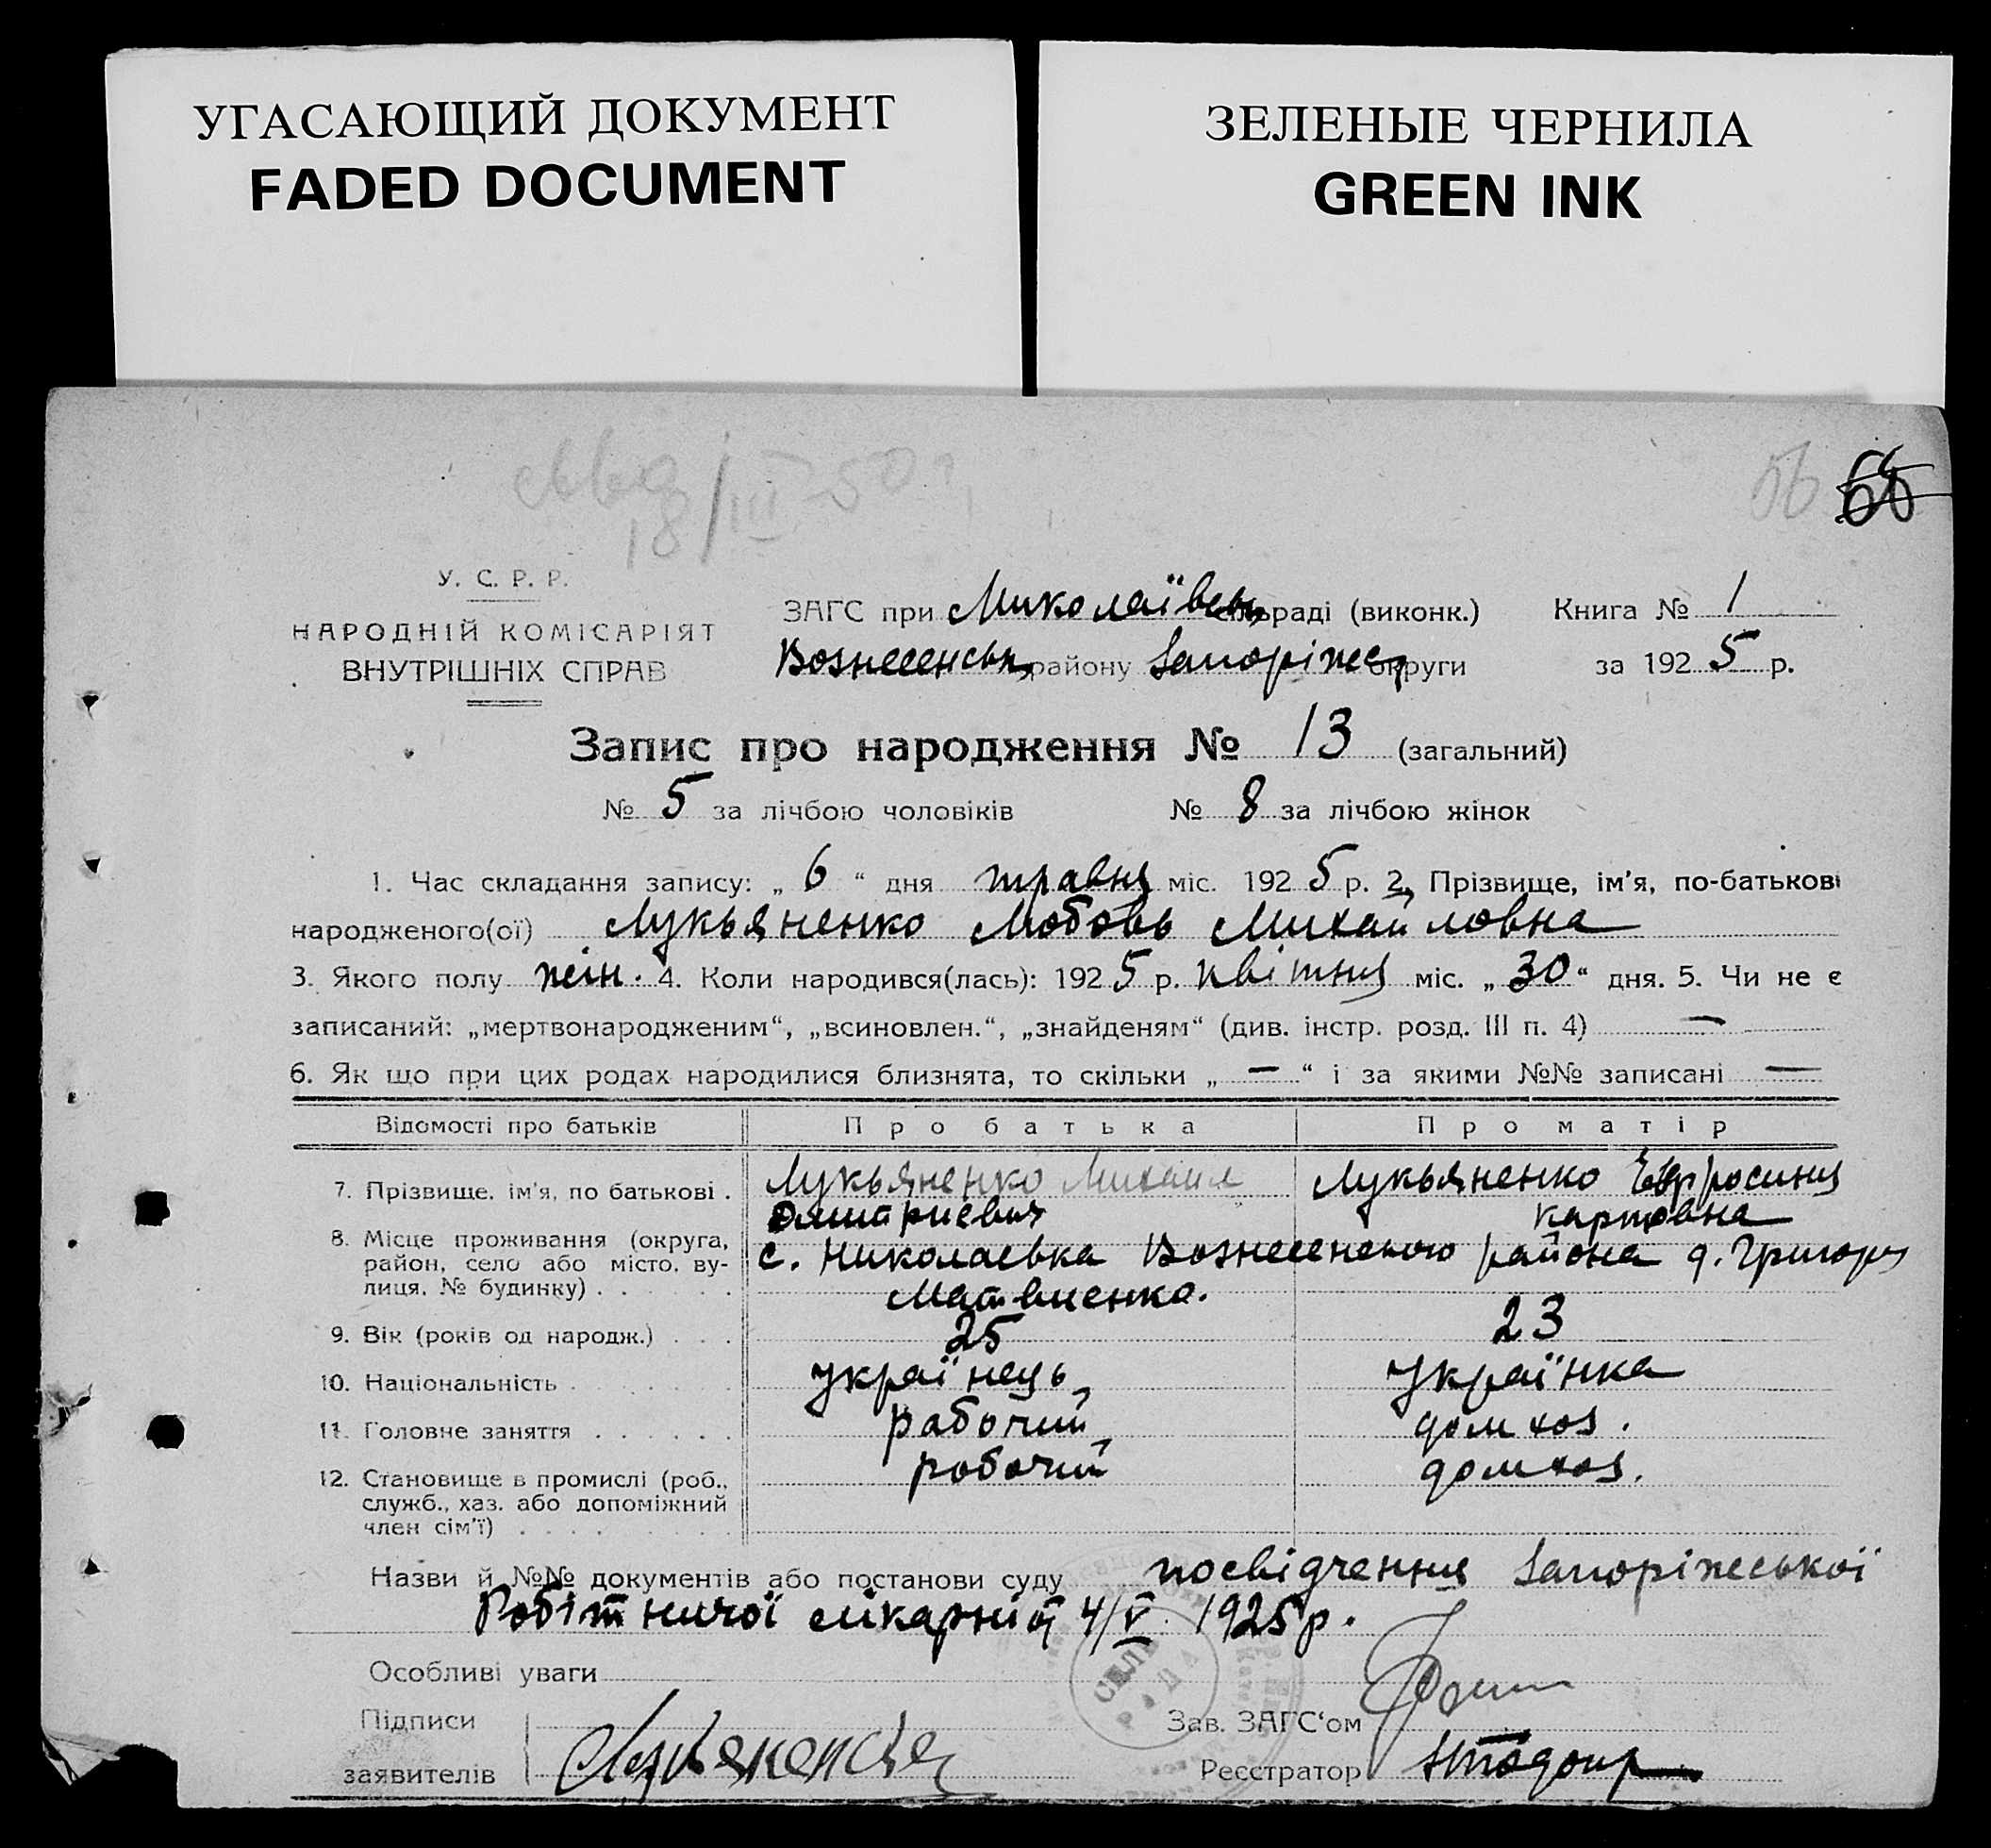 УГАСАЮЩИЙ ДОКУМЕНТ
FADED DOCUMENT
ЗЕЛЕНЫЕ ЧЕРНИЛА
GREEN INK
18/III-50
56 66
У. С. Р. Р.
НАРОДНІЙ КОМІСАРІЯТ
ВНУТРІШНІХ СПРАВ
ЗАГС при Миколаївськ сільраді (виконк.) Книга № 1
Вознесенськ району Запоріжс округи за 1925 р.
Запис про народження № 13 (загальний)
№ 5 за лічбою чоловіків № 8 за лічбою жінок
1. Час складання запису: „6“ дня травня міс. 1925 р. 2. Прізвище, ім'я, по-батькові
народженого(ої) Лукьяненко Любовь Михайловна
3. Якого полу жін. 4. Коли народився(лась): 1925 р. квітня міс. „30“ дня. 5. Чи не є
записаний: „мертвонародженим“, „всиновлен.“, „знайденям“ (див. інстр. розд. III п. 4) —
6. Як що при цих родах народилися близнята, то скільки „—“ і за якими №№ записані —
Відомості про батьків Про батька Про матір
7. Прізвище, ім'я, по батькові . Лукьяненко Михаил Дмитриевич Лукьяненко Евфросиния Карповна
8. Місце проживання (округа, район, село або місто, вулиця, № будинку) . . . . . . с. Николаевка Вознесенского района д. Григория Матвиенко.
9. Вік (років од народж.) . . . 25 23
10. Національність . . . . . . . українець українка
11. Головне заняття . . . . . . рабочий дом хоз.
12. Становище в промислі (роб., служб., хаз. або допоміжний член сім'ї) . . . . . . . . . робочий домхоз.
Назви й №№ документів або постанови суду посвідчення Запоріжської
Робітничої лікарні 4/V 1925 р.
Особливі уваги
Підписи
заявителів
Зав. ЗАГС‘ом
Реєстратор
СЕЛЬ
РАДА